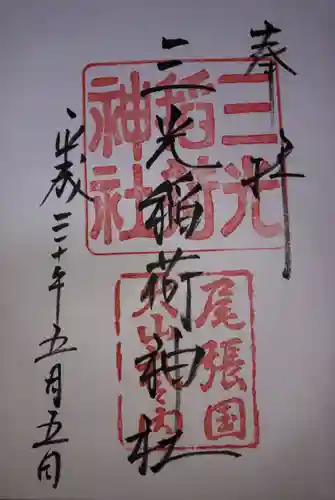 奉拝
三光稲荷神社
平成三十年五月五日
三光
稲荷
神社
尾張国
犬山